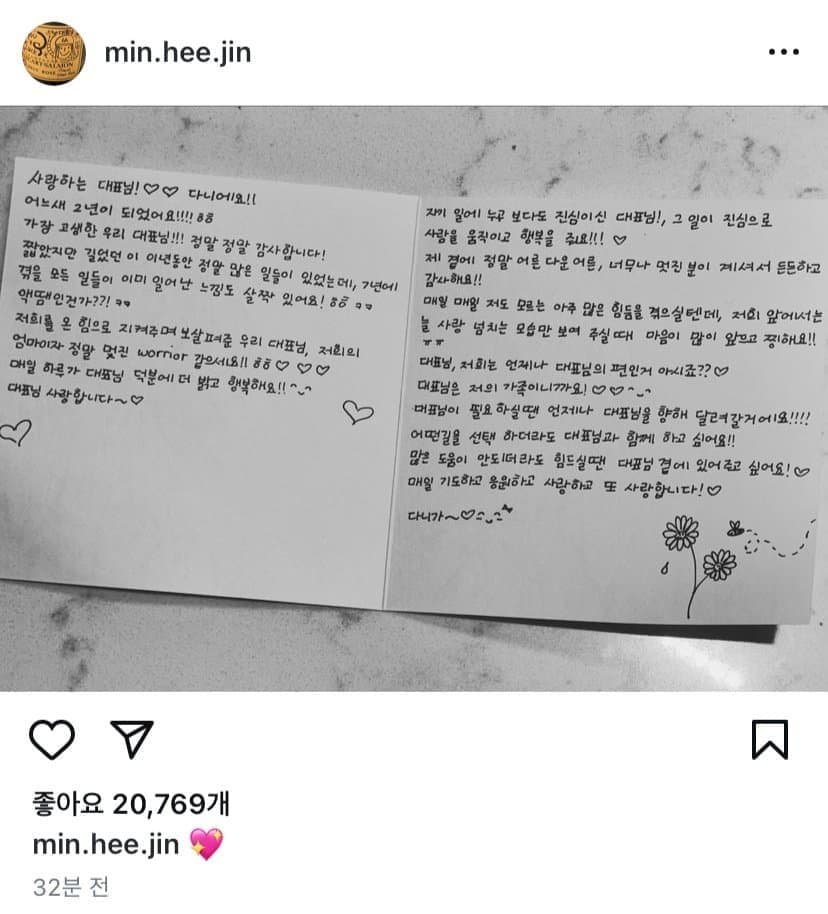 min.hee.jin
사랑하는 대표님!♡♡ 다니에요!!
어느새 2년이 되었어요!!!! ㅎㅎ
가장 고생한 우리 대표님!!! 정말 정말 감사합니다!
짧았지만 길었던 이 이년동안 정말 많은 일들이 있었는데, 7년에
겪을 모든 일들이 이미 일어난 느낌도 살짝 있어요! ㅎㅎ ㅋㅋ
액땜인건가??! ㅋㅋ
저희를 온 힘으로 지켜주며 보살펴준 우리 대표님, 저희의
엄마이자 정말 멋진 worrior 같으세요!! ㅎㅎ ♡ ♡ ♡
매일 하루가 대표님 덕분에 더 밝고 행복해요!! ^~^
대표님 사랑합니다~♡
자기 일에 누구 보다도 진심이신 대표님!, 그 일이 진심으로
사람을 움직이고 행복을 줘요!!! ♡
제 곁에 정말 어른 다운 어른, 너무나 멋진 분이 계셔서 든든하고
감사해요!!
매일 매일 저도 모르는 아주 많은 힘듬을 겪으실텐데, 저희 앞에서는
늘 사랑 넘치는 모습만 보여 주실때 마음이 많이 아프고 찡해요!!
ㅠㅠ
대표님, 저희는 언제나 대표님의 편인거 아시죠??♡
대표님은 저의 가족이니까요! ♡♡^~^
대표님이 필요하실땐 언제나 대표님을 향해 달려갈거에요!!!!
어떤길을 선택 하더라도 대표님과 함께 하고 싶어요!!
많은 도움이 안되더라도 힘드실땐 대표님 곁에 있어주고 싶어요!♡
매일 기도하고 응원하고 사랑하고 또 사랑합니다!♡
다니가~♡
좋아요 20,769개
min.hee.jin 💖
32분 전